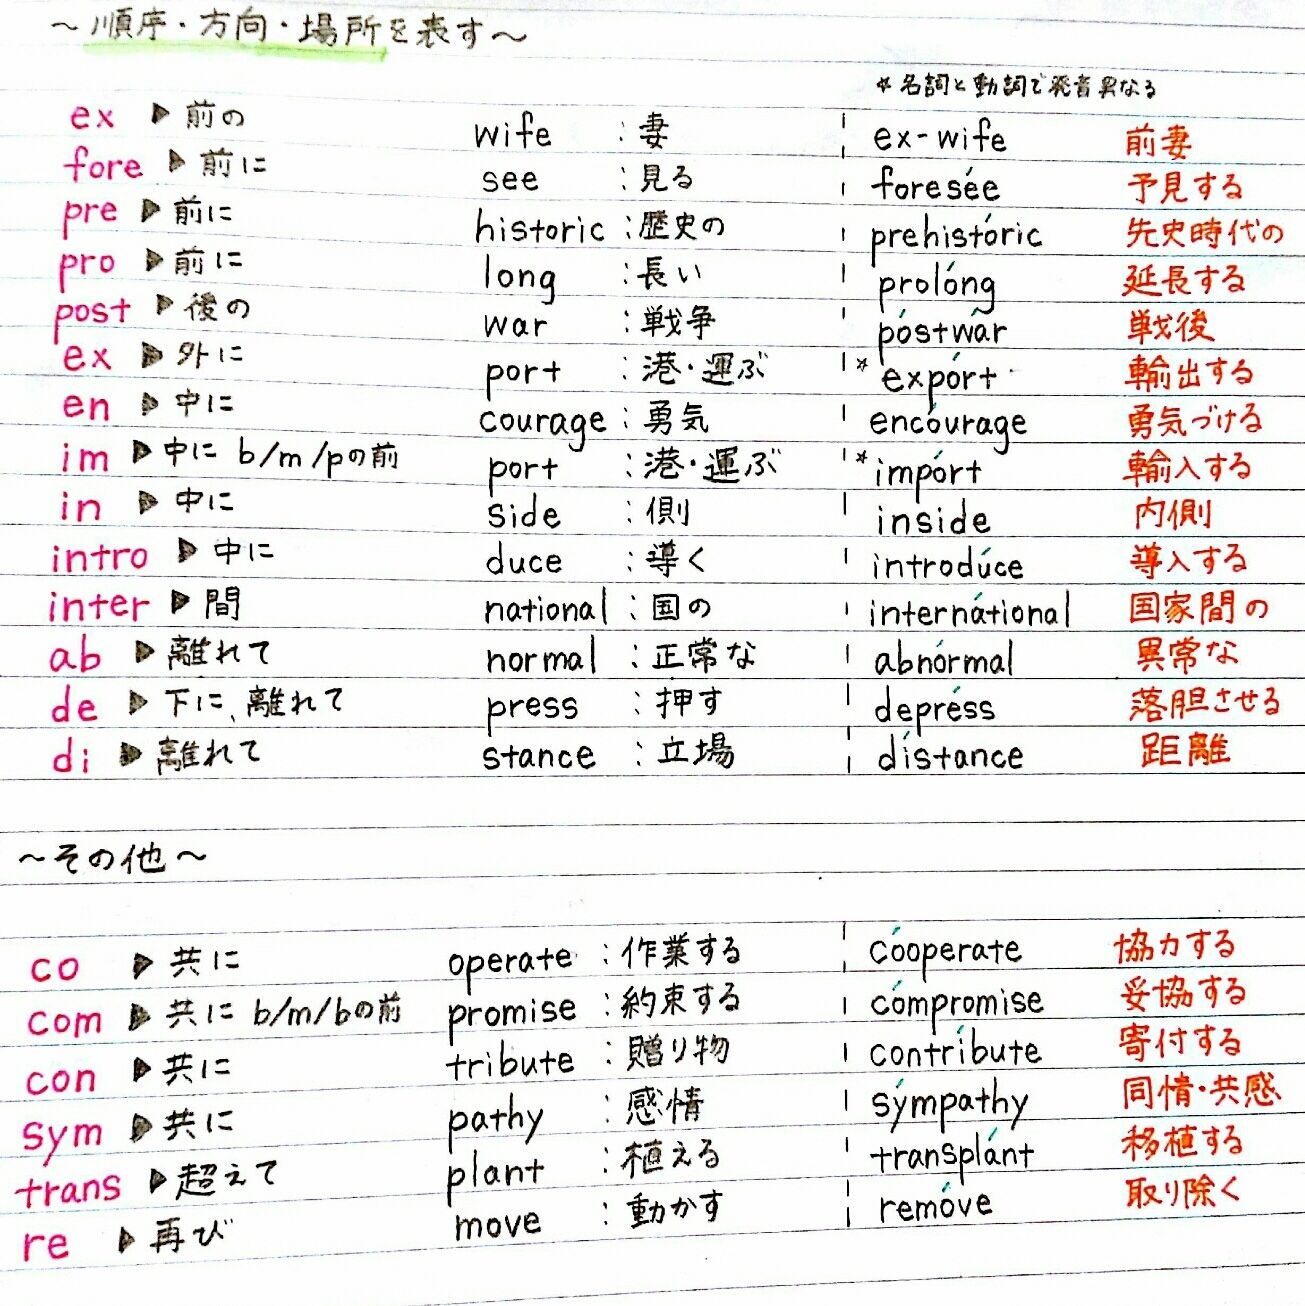 ～順序・方向・場所を表す～
*名詞と動詞で発音異なる
ex ▶ 前の wife : 妻 ex-wife 前妻
fore ▶ 前に see : 見る foresée 予見する
pre ▶ 前に historic : 歴史の prehistóric 先史時代の
pro ▶ 前に long : 長い prolóng 延長する
post ▶ 後の war : 戦争 póstwár 戦後
ex ▶ 外に port : 港・運ぶ *expórt 輸出する
en ▶ 中に courage : 勇気 encóurage 勇気づける
im ▶ 中に b/m/pの前 port : 港・運ぶ *impórt 輸入する
in ▶ 中に side : 側 inside 内側
intro ▶ 中に duce : 導く introdúce 導入する
inter ▶ 間 national : 国の internátional 国家間の
ab ▶ 離れて normal : 正常な abnórmal 異常な
de ▶ 下に、離れて press : 押す depréss 落胆させる
di ▶ 離れて stance : 立場 dístance 距離
～その他～
co ▶ 共に operate : 作業する cóoperate 協力する
com ▶ 共に b/m/bの前 promise : 約束する cómpromise 妥協する
con ▶ 共に tribute : 贈り物 contríbute 寄付する
sym ▶ 共に pathy : 感情 sýmpathy 同情・共感
trans ▶ 超えて plant : 植える transplánt 移植する
re ▶ 再び move : 動かす remóve 取り除く